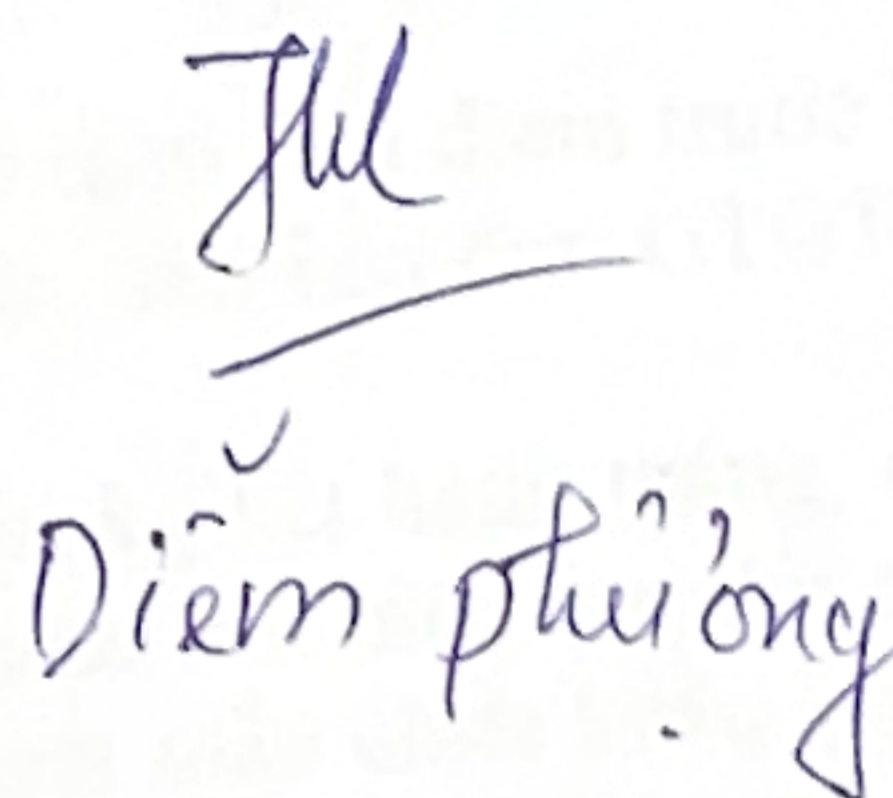 Diễm phượng